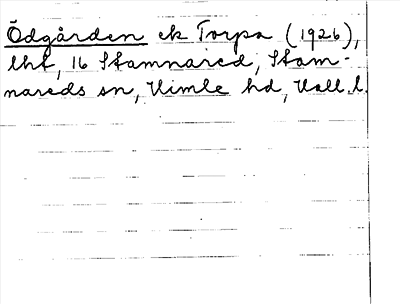 Ödgården ek Torpa (1926),
lht, 16 Stamnared, Stam-
nareds sn, Himle hd, Hall. l.